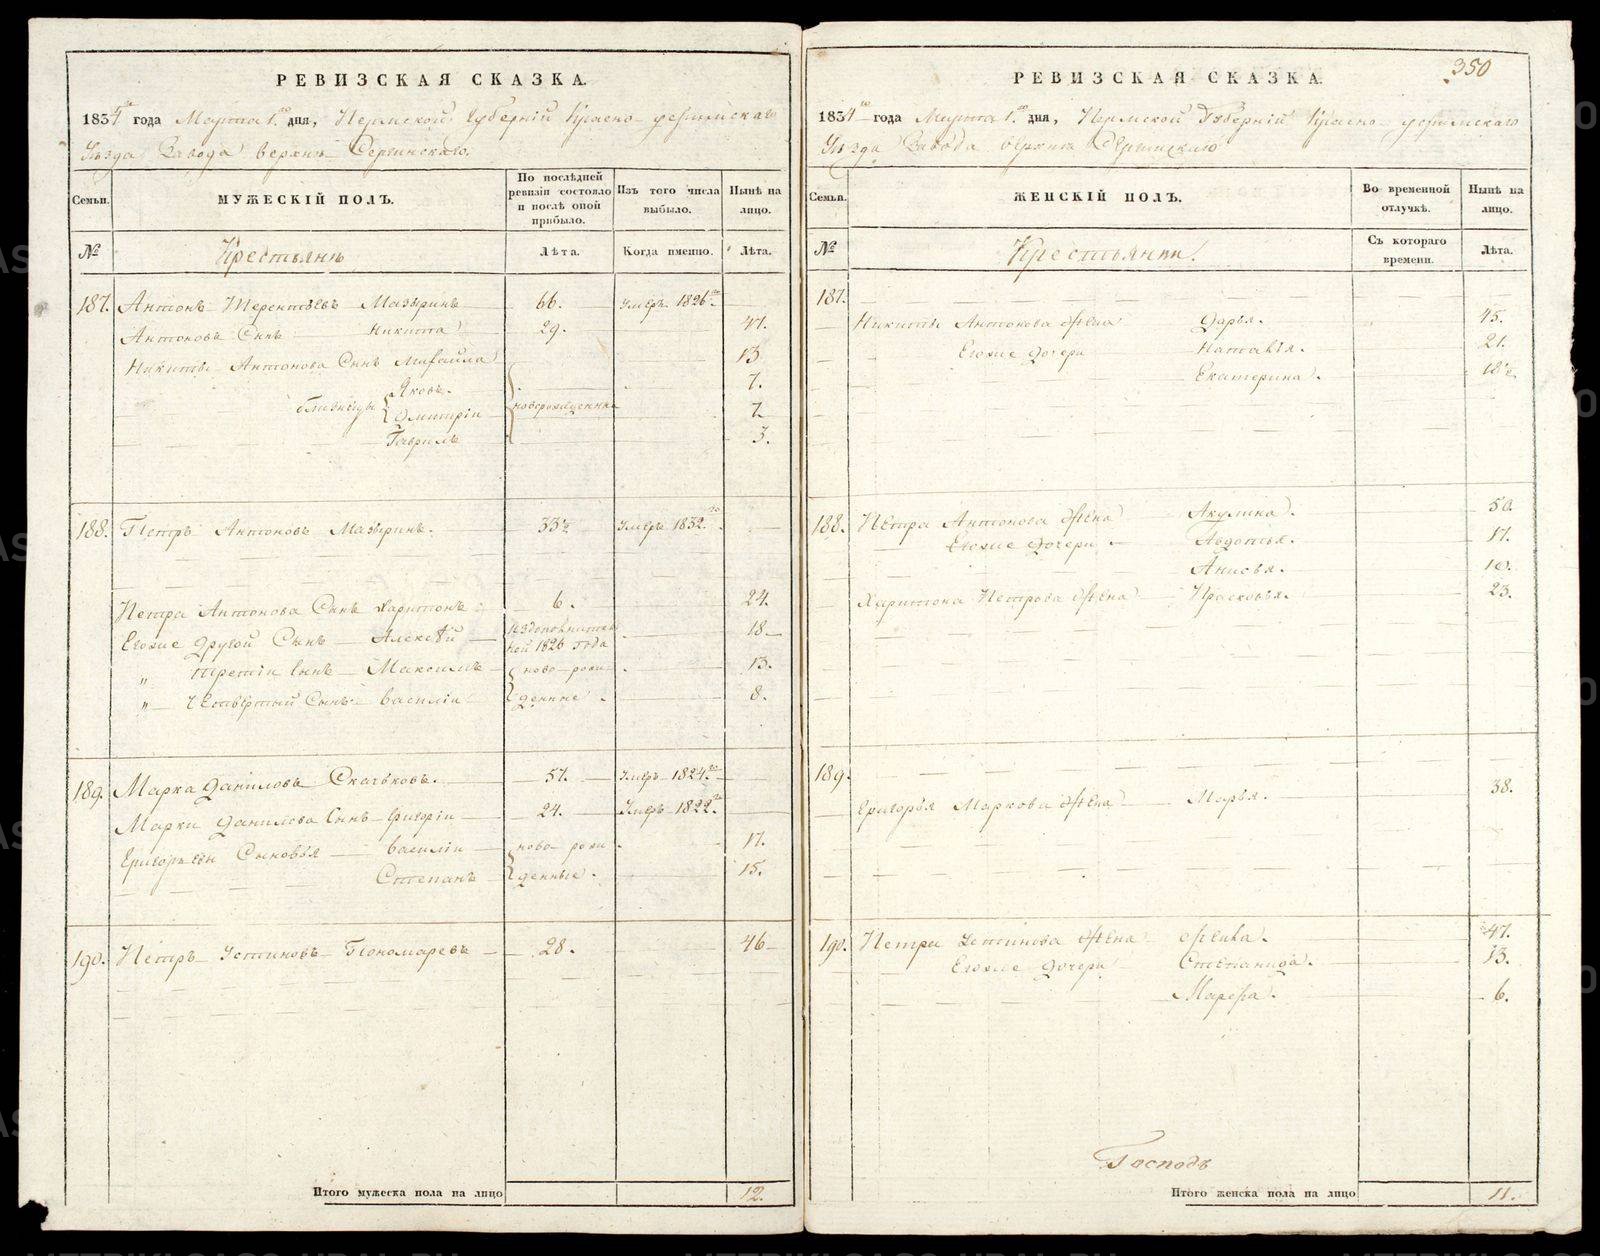 РЕВИЗСКАЯ СКАЗКА.
1834го года Марта 1го дня, Пермской Губернiи Красно-уфимскаго
Уѣзда Завода Верхнѣ-Сергинскаго.
Семьи.
МУЖЕСКIЙ ПОЛЪ.
По послѣдней ревизiи состояло и послѣ оной прибыло.
Изъ того числа выбыло.
Нынѣ на лицо.
№
Крестьянѣ
Лѣта.
Когда именно.
Лѣта.
187. Антонъ Терентьевъ Мазыринъ 66. Умеръ 1826го
Антоновъ Сынъ Никита 29. 47.
Никиты Антонова Сынъ Михайла 13
близнецы Яковъ. 7.
Дмитрiи новорожденныя 7.
Гаврилъ 3.
188. Петръ Антоновъ Мазыринъ. 33½ Умеръ 1832го
Петра Антонова Сынъ Харитонъ 6. 24.
Егоже Другой Сынъ Алексѣй 1826 года 18
„ Третiи Сынъ Максимъ ново-рож- 13.
„ Четвертый Сынъ Василiи денные 8.
189. Марка Даниловъ Скачковъ. 57. Умеръ 1824го
Марки Данилова Сынъ Григорiи 24. Умеръ 1822го
Григорьевы Сыновья Василiи ново-рож- 17.
Степанъ денные. 15.
190. Петръ Устиновъ Пономаревъ 28. 46
Итого мужеска пола на лицо 12.
350
РЕВИЗСКАЯ СКАЗКА.
1834го года Марта 1го дня, Пермской Губернiи Красно-уфимскаго
Уѣзда Завода Верхнѣ Сергинскаго
Семьи.
ЖЕНСКIЙ ПОЛЪ.
Во временной отлучкѣ.
Нынѣ на лицо.
№
Крестьянки.
Съ котораго времени.
Лѣта.
187.
Никиты Антонова Жена Дарья. 45.
Егоже Дочери Наталья. 21.
Екатерина. 18½
188. Петра Антонова Жена Акулина. 50.
Егоже Дочери Авдотья. 17.
Анисья. 10.
Харитона Петрова Жена Прасковья. 23.
189.
Григорья Маркова Жена Марья. 38.
190. Петра Устинова Жена Фекла. 47.
Егоже Дочери Степанида. 13.
Марфа. 6.
Господъ
Итого женска пола на лицо 11.